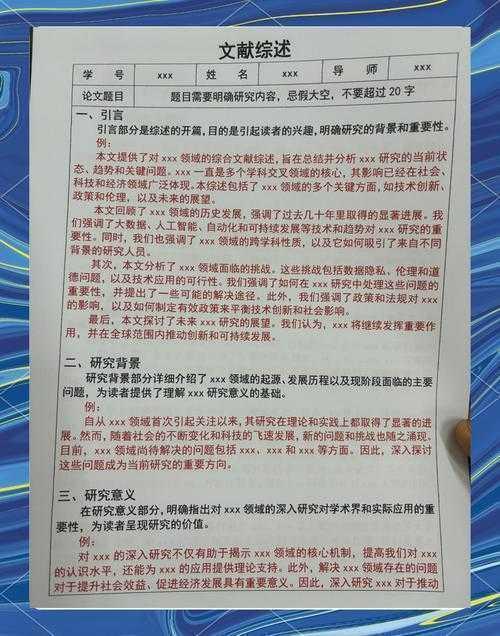 文献综述
学 号 xxx 姓 名 xxx 导 师 xxx
论文题目 题目需要明确研究内容，忌假大空，不要超过 20 字
一、引言
引言部分是综述的开篇,目的是引起读者的兴趣,明确研究的背景和重要性。
例：
本文提供了对 xxx 领域的综合文献综述,旨在总结并分析 xxx 研究的当前状
态、趋势和关键问题。xxx 一直是多个学科交叉领域的核心，其影响已经在社会、
科技和经济领域广泛体现。本综述包括了 xxx 领域的多个关键方面,如技术创新、
政策和伦理，以及未来的展望。
本文回顾了 xxx 领域的历史发展，强调了过去几十年里取得的显著进展。我
们强调了大数据、人工智能、自动化和可持续发展等技术和趋势对 xxx 研究的重
要性。同时，我们也强调了 xxx 领域的跨学科性质，以及它如何吸引了来自不同
背景的研究人员。
其次，本文分析了 xxx 领域面临的挑战。这些挑战包括数据隐私、伦理和道
德问题，以及技术应用的可行性。我们强调了如何在 xxx 研究中处理这些问题的
重要性，并提出了一些可能的解决途径。此外，我们强调了政策和法规对 xxx
的影响，以及如何制定有效政策来平衡技术创新和社会影响。
最后，本文探讨了未来 xxx 研究的展望。我们认为，xxx 将继续发挥重要作
用，并在全球范围内推动创新和可持续发展。
二、研究背景
研究背景部分详细介绍了 xxx 领域的起源、发展历程以及现阶段面临的主要
问题，为读者提供了理解 xxx 研究意义的基础。
例：
自从 xxx 领域首次引起关注以来,其研究在理论和实践上都取得了显著的进
展。然而,随着社会的不断变化和科技的飞速发展,新的问题和挑战也随之涌现。
目前，xxx 领域尚待解决的问题包括 xxx、xxx 和 xxx 等方面。因此，深入探讨
这些问题成为当前研究的重要方向。
三、研究意义
在研究意义部分,明确指出对 xxx 领域的深入研究对学术界和实际应用的重
要性，为读者呈现研究的价值。
例：
对 xxx 的深入研究不仅有助于揭示 xxx 领域的核心机制，提高我们对 xxx
的认识水平，还能为 xxx 的应用提供理论支持。此外，解决 xxx 领域存在的问题
对于提升社会效益、促进经济发展具有重要意义。因此，深入研究 xxx 对于推动